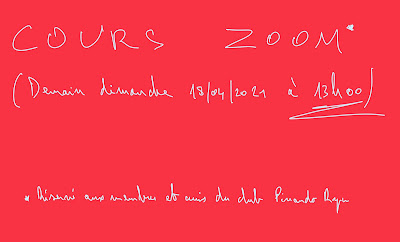 COURS ZOOM*
(Demain dimanche 18/04/2021 à 13h00)
* Réservé aux membres et amis du club